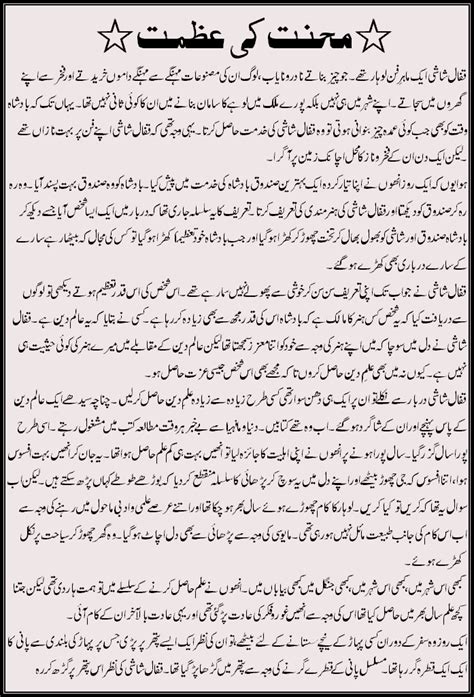 ☆محنت کی عظمت☆
قفال شاشی ایک ماہر فن لوہار تھے۔ جو چیز بناتے نادر و نایاب، لوگ ان کی مصنوعات مہنگے سے مہنگے داموں خریدتے اور فخر سے اپنے
گھروں میں سجاتے۔ اپنے شہر میں ہی نہیں بلکہ پورے ملک میں لوہے کا سامان بنانے میں ان کا کوئی ثانی نہیں تھا۔ یہاں تک کہ بادشاہ
وقت کو بھی جب کوئی عمدہ چیز بنوانی ہوتی تو وہ قفال شاشی کی خدمت حاصل کرتا۔ یہی وجہ تھی کہ قفال شاشی اپنے فن پر بہت نازاں تھے
لیکن ایک دن ان کے فخر و ناز کا محل اچانک زمین پر آگرا۔
ہوا یوں کہ ایک روز انھوں نے اپنا تیار کردہ ایک بہترین صندوق بادشاہ کی خدمت میں پیش کیا۔ بادشاہ کو وہ صندوق بہت پسند آیا۔ وہ رہ
رہ کر صندوق کو دیکھتا اور قفال شاشی کی ہنر مندی کی تعریف کرتا۔ تعریف کا یہ سلسلہ جاری تھا کہ دربار میں ایک ایسا شخص آیا جسے دیکھ کر
بادشاہ صندوق اور شاشی کو بھول بھال کر تخت چھوڑ کر کھڑا ہوگیا اور جب بادشاہ خود تعظیماً کھڑا ہوگیا تو کس کی مجال کہ بیٹھا رہے سارے
کے سارے درباری بھی کھڑے ہوگئے۔
قفال شاشی نے جو اب تک اپنی تعریف سن سن کر خوشی سے پھولے نہیں سما رہے تھے۔ اس شخص کی اس قدر تعظیم ہوتے دیکھی تو لوگوں
سے دریافت کیا کہ یہ شخص کس ہنر کا مالک ہے کہ بادشاہ اس کی قدر مجھ سے بھی زیادہ کر رہا ہے۔ کسی نے بتایا کہ یہ عالم دین ہے۔ قفال
شاشی نے دل میں سوچا کہ میں اپنے ہنر کی وجہ سے خود کو اتنا معزز سمجھتا تھا لیکن عالم دین کے مقابلے میں میرے ہنر کی کوئی حیثیت ہی نہیں
ہے۔ کیوں نہ میں بھی علم دین حاصل کروں تاکہ مجھے بھی اس شخص جیسی عزت حاصل ہو۔
قفال شاشی دربار سے نکلے تو ان پر ایک ہی دھن سوار تھی کسی طرح زیادہ سے زیادہ علم دین حاصل کرلیں۔ چنانچہ سیدھے ایک عالم دین
کے پاس پہنچے اور ان کے شاگرد ہوگئے۔ اب وہ تھے کتابیں۔ دنیا و مافیہا سے بے خبر ہر وقت مطالعۂ کتب میں مشغول رہتے۔ اسی طرح
پورا سال گزر گیا۔ سال پورا ہونے پر انھوں نے اپنی اہلیت کا جائزہ لیا تو انھیں بہت ہی کم علم حاصل ہوا تھا۔ یہ جان کر انھیں بہت افسوس ہوا،
اتنا افسوس کہ جی چھوڑ بیٹھے اور اپنے دل میں یہ سوچ کر پڑھائی کا سلسلہ منقطع کردیا کہ بوڑھے طوطے کہاں پڑھ سکتے ہیں۔ لیکن اب
سوال یہ تھا کہ کریں تو کیا کریں۔ لوہار کا کام چھوڑے ہوئے سال بھر ہوچکا تھا اور اتنے عرصے علمی و ادبی ماحول میں رہنے کی وجہ سے
اب اس کام کی جانب طبیعت مائل نہیں ہو رہی تھی۔ مایوسی کی وجہ سے پڑھائی سے بھی دل اچاٹ ہوگیا۔ وہ گھر چھوڑ کر سیاحت پر نکل
کھڑے ہوئے۔
کبھی اس شہر میں، کبھی اس شہر میں، کبھی جنگل میں، کبھی بیاباں میں۔ انھوں نے علم حاصل کرنے کے سلسلے میں تو ہمت ہار دی تھی لیکن جتنا
کچھ علم سال بھر میں حاصل کیا تھا اس کی وجہ سے انھیں غور و فکر کی عادت ہوگئی تھی اور یہی عادت بالآخر ان کے کام آئی۔
ایک روز وہ سفر کے دوران کسی پہاڑ کے نیچے سستانے کے لئے بیٹھے تو ان کی نظر ایک ایسے پتھر پر پڑی جس پر پہاڑ کی بلندی سے پانی کا
ایک ایک قطرہ گر رہا تھا۔ مسلسل پانی کے قطرے گرنے کی وجہ سے پتھر میں گڑھا پڑ گیا تھا۔ قفال شاشی کی نظر اس پتھر پر گڑھ کر رہ